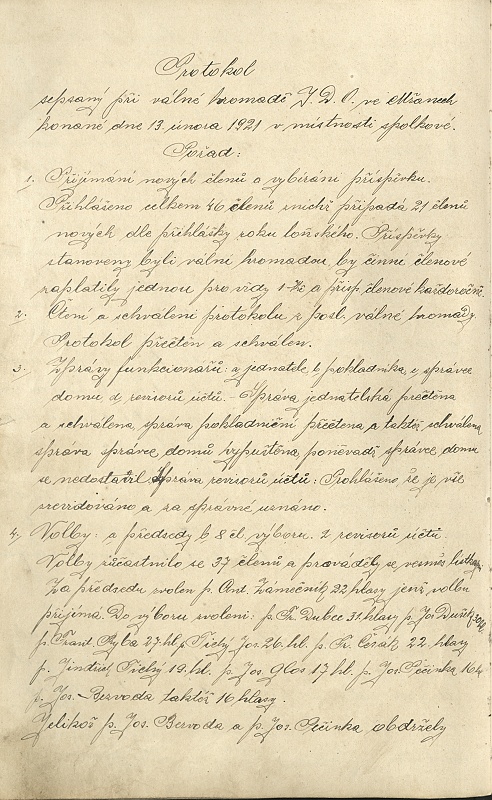 Protokol
sepsaný při válné hromadě J. D. O. ve Mřanech
konané dne 13. února 1921 v místnosti spolkové.
Pořad:
1. Přijímání nových členů a vybírání příspěvku.
Přihlášeno celkem 46 členů z nichž připadá 21 členů
nových dle přihlášky roku loňského. Příspěvky
stanoveny byli vální hromadou by činní členové
zaplatily jednou pro vždy 1 Kč a přisp. členové každoročně.
2. Čtení a schválení protokolu z posl. válné hromady.
Protokol přečten a schválen.
3. Zprávy funkcionářů: a jednatele, b pokladníka, c správce
domu d, revisorů účtů. - Zpráva jednatelská přečtena
a schválena, zpráva pokladniční přečtena a taktéž schválena
zpráva správce domů vypuštěna poněvadž správce domu
se nedostavil. Zpráva revisorů účtů: Prohlášeno že je vše
zrevidováno a za správné uznáno.
4. Volby: a předsedy b 8 čl. výboru. 2 revisorů účtů.
Volby súčastnilo se 37 členů a prováděly se vesměs lístkem.
Za předsedu zvolen p. Ant. Zámečník 22 hlasy jenž volbu
přijímá. Do výboru zvoleni: p. Fr. Dubec 31 hlasy p. Jos. Dušek
p. Frant. Ryba 27 hl. Tichý Jos. 26 hl. p. Fr. Cesák 22 hlasy
p. Jindřich Tichý 19 hl. p. Jos. Glos 17 hl. p. Jos. Pečinka 16 h
p. Jos. Bezvoda taktéž 16 hlasy.
Jelikož p. Jos. Bezvoda a p. Jos. Pečinka obdržely